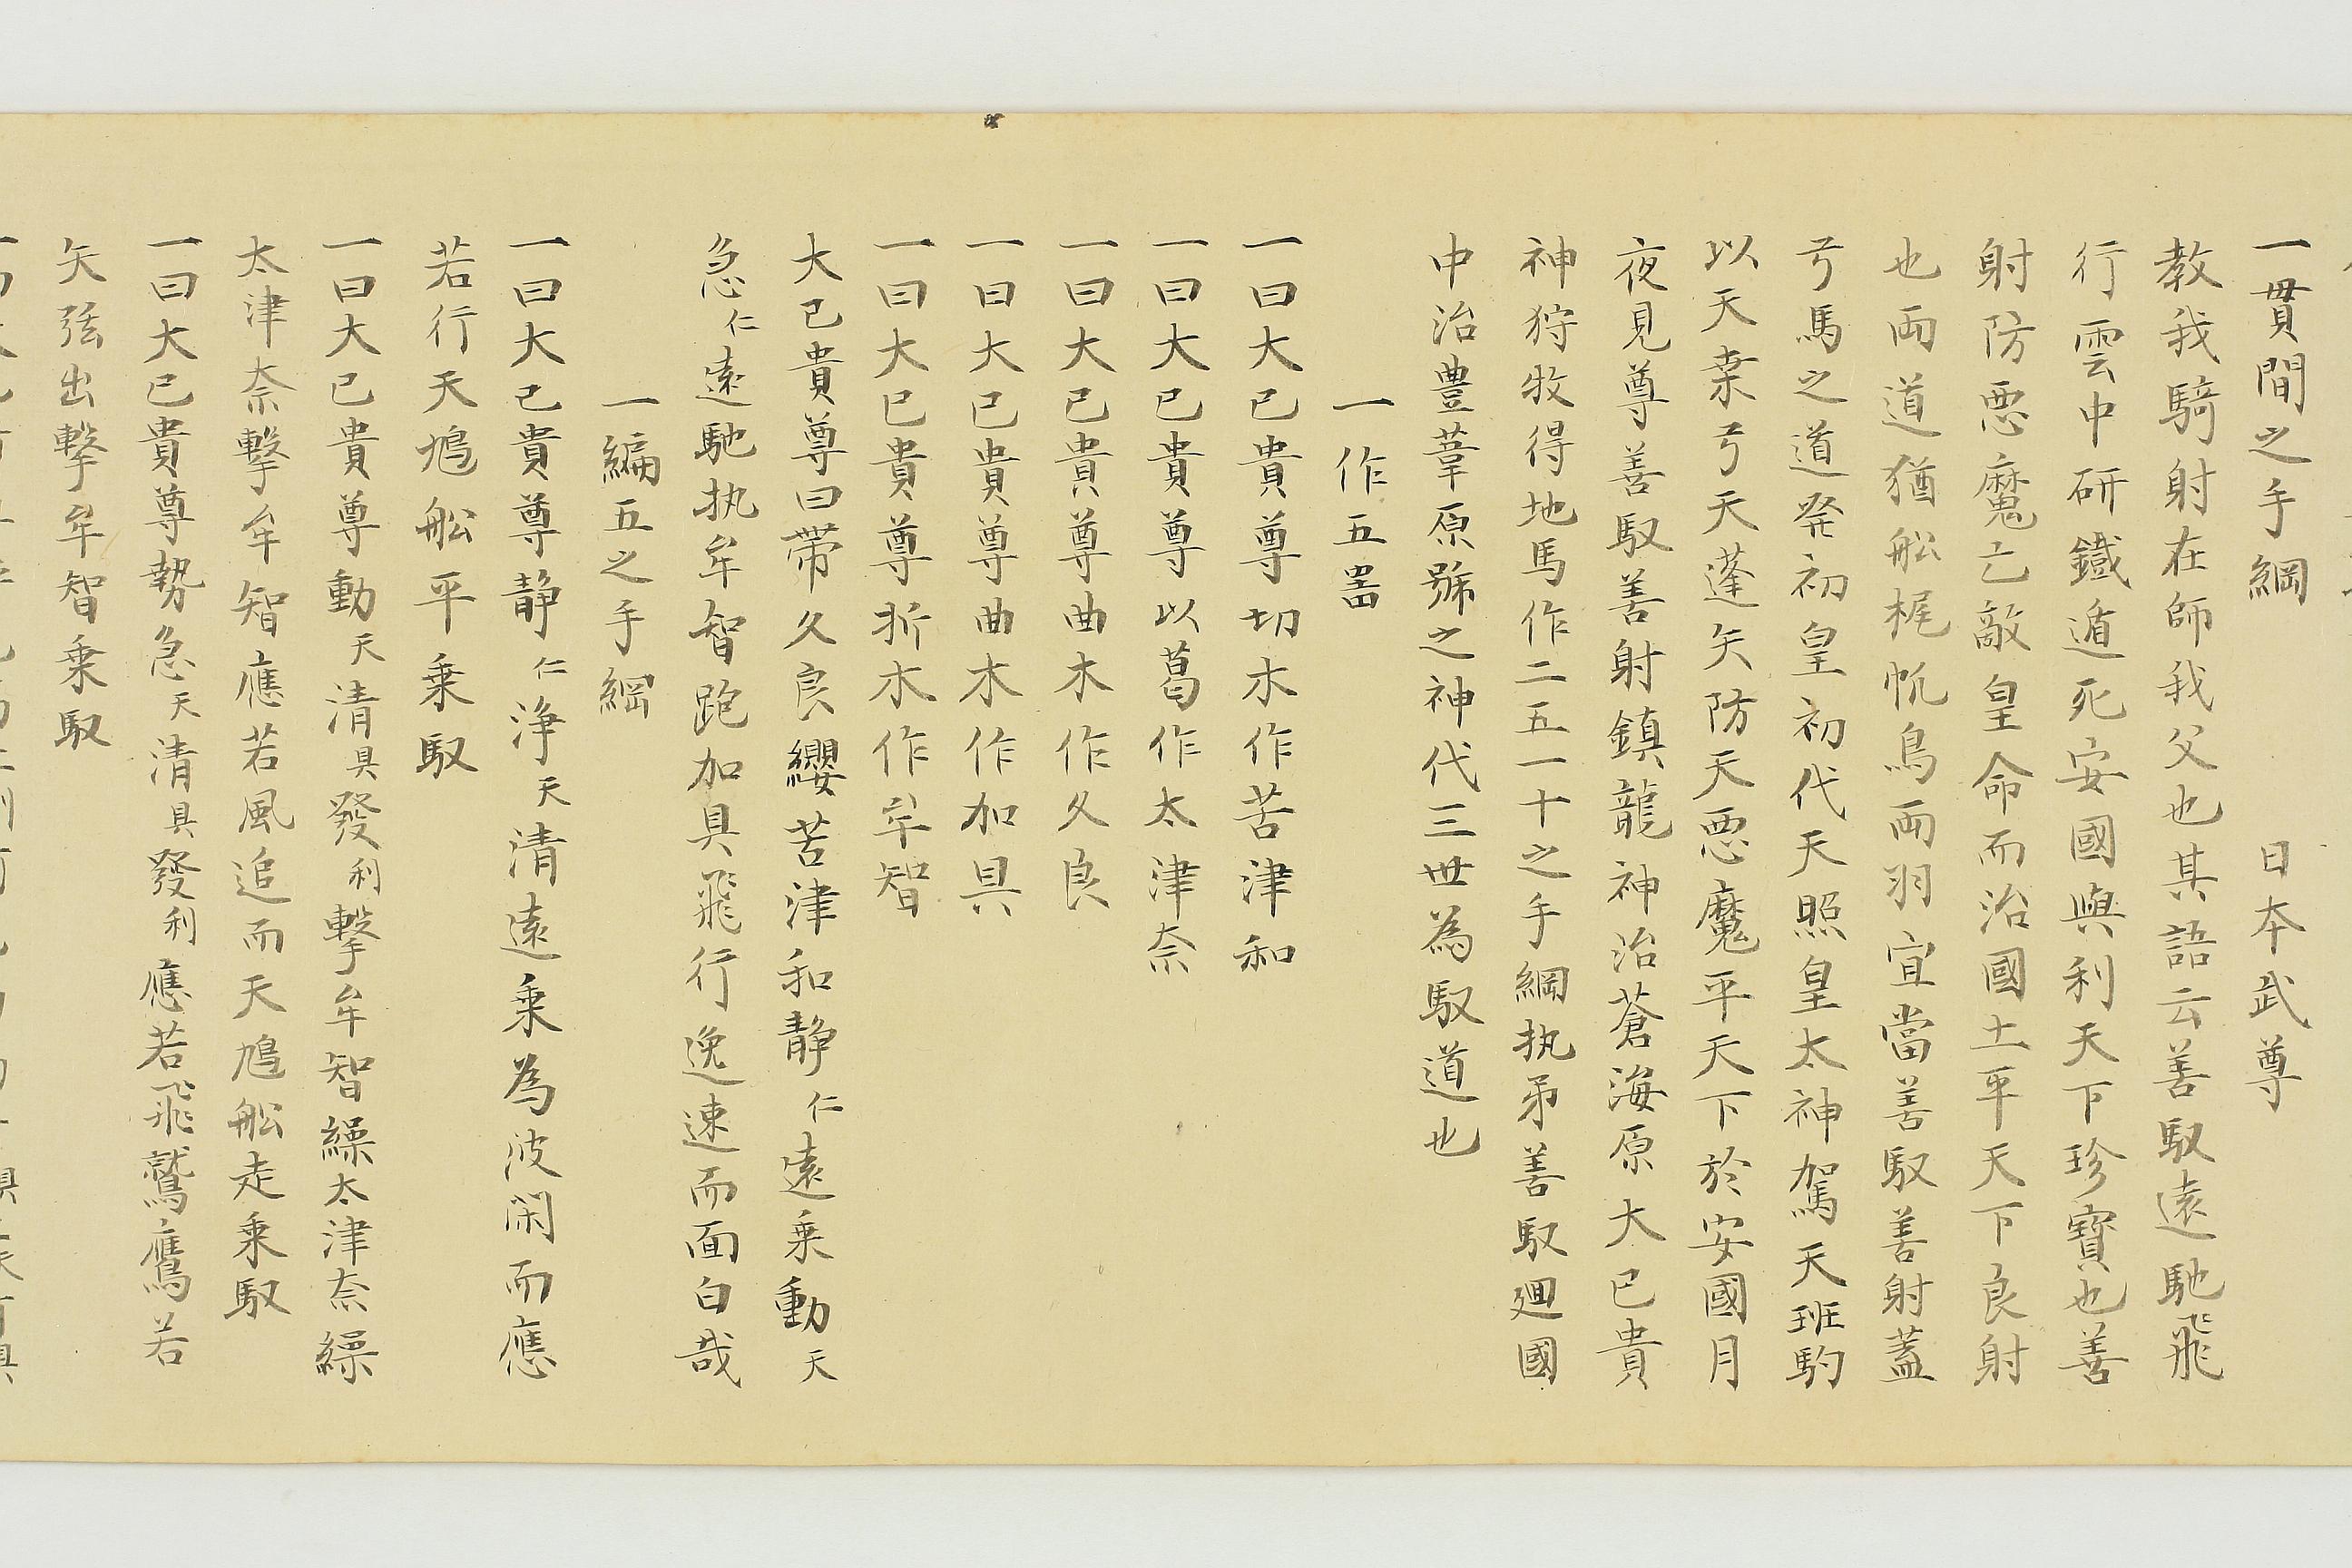 一貫間之手綱　日本武尊
教我騎射在師我父也其語云善馭遠馳飛
行雲中研鐡遁死安國與利天下珍寶也善
射防悪魔亡敵皇命而治國土平天下良射
也両道猶舩梶帆鳥両羽宜當善馭善射蓋
弓馬之道発初皇初代天照皇太神駕天班駒
以天枽弓天蓬矢防天悪魔平天下於安國月
夜見尊善馭善射鎮龍神治蒼海原大己貴
神狩牧得地馬作二五一十之手綱执弟善馭廻國
中治豊葦原號之神代三世為馭道也
一作五
一曰大己貴尊切木作苦津和
一曰大己貴尊以葛作太津奈
一曰大己貴尊曲木作久良
一曰大己貴尊曲木作加具
一曰大己貴尊折木作牟智
大己貴尊曰帯久良纓苦津和静仁遠乗動天
急仁遠馳执牟智跑加具飛行逸速而面白哉
一編五之手綱
一曰大己貴尊静仁浄天清遠乗為波閑而應
若行天鳩舩平乗馭
一曰大己貴尊動天清具發利撃牟智繰太津奈繰
太津奈撃牟智應若風追而天鳩舩走乗馭
一曰大己貴尊勢急天清具發利應若飛鷲鷹若
矢弦出撃牟智乗馭